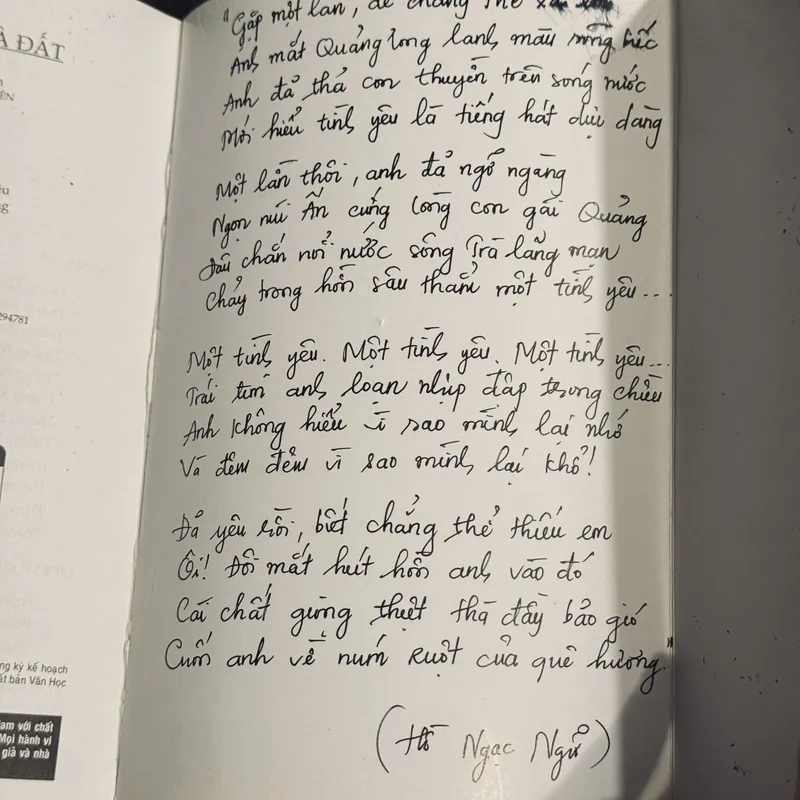 À ĐẤT
ÊN
294781
ng ký kế hoạch
ất bản Văn Học
am với chất
Mọi hành vi
giả và nhà
"Gặp một lần, để chẳng thể
Anh mắt Quảng long lanh màu mồng biếc
Anh đả thả con thuyền trên sóng nước
Mới hiểu tình yêu là tiếng hát dịu dàng
Một lần thôi, anh đả ngở ngàng
Ngọn núi Ấn cứng lòng con gái Quảng
Đâu chắn nổi nước sông Trà lẳng mạn
Chảy trong hồn sâu thẳm một tình yêu...
Một tình yêu. Một tình yêu. Một tình yêu...
Trái tim anh loạn nhịp đập trong chiều
Anh không hiểu vì sao mình lại nhớ
Và đêm đêm vì sao mình lại khổ!
Đả yêu rồi, biết chẳng thể thiếu em
Ôi! Đôi mắt hút hồn anh vào đó
Cái chất giọng thiệt thà đầy bảo gió
Cuốn anh về núm ruột của quê hương."
(Hồ Ngạc Ngữ)